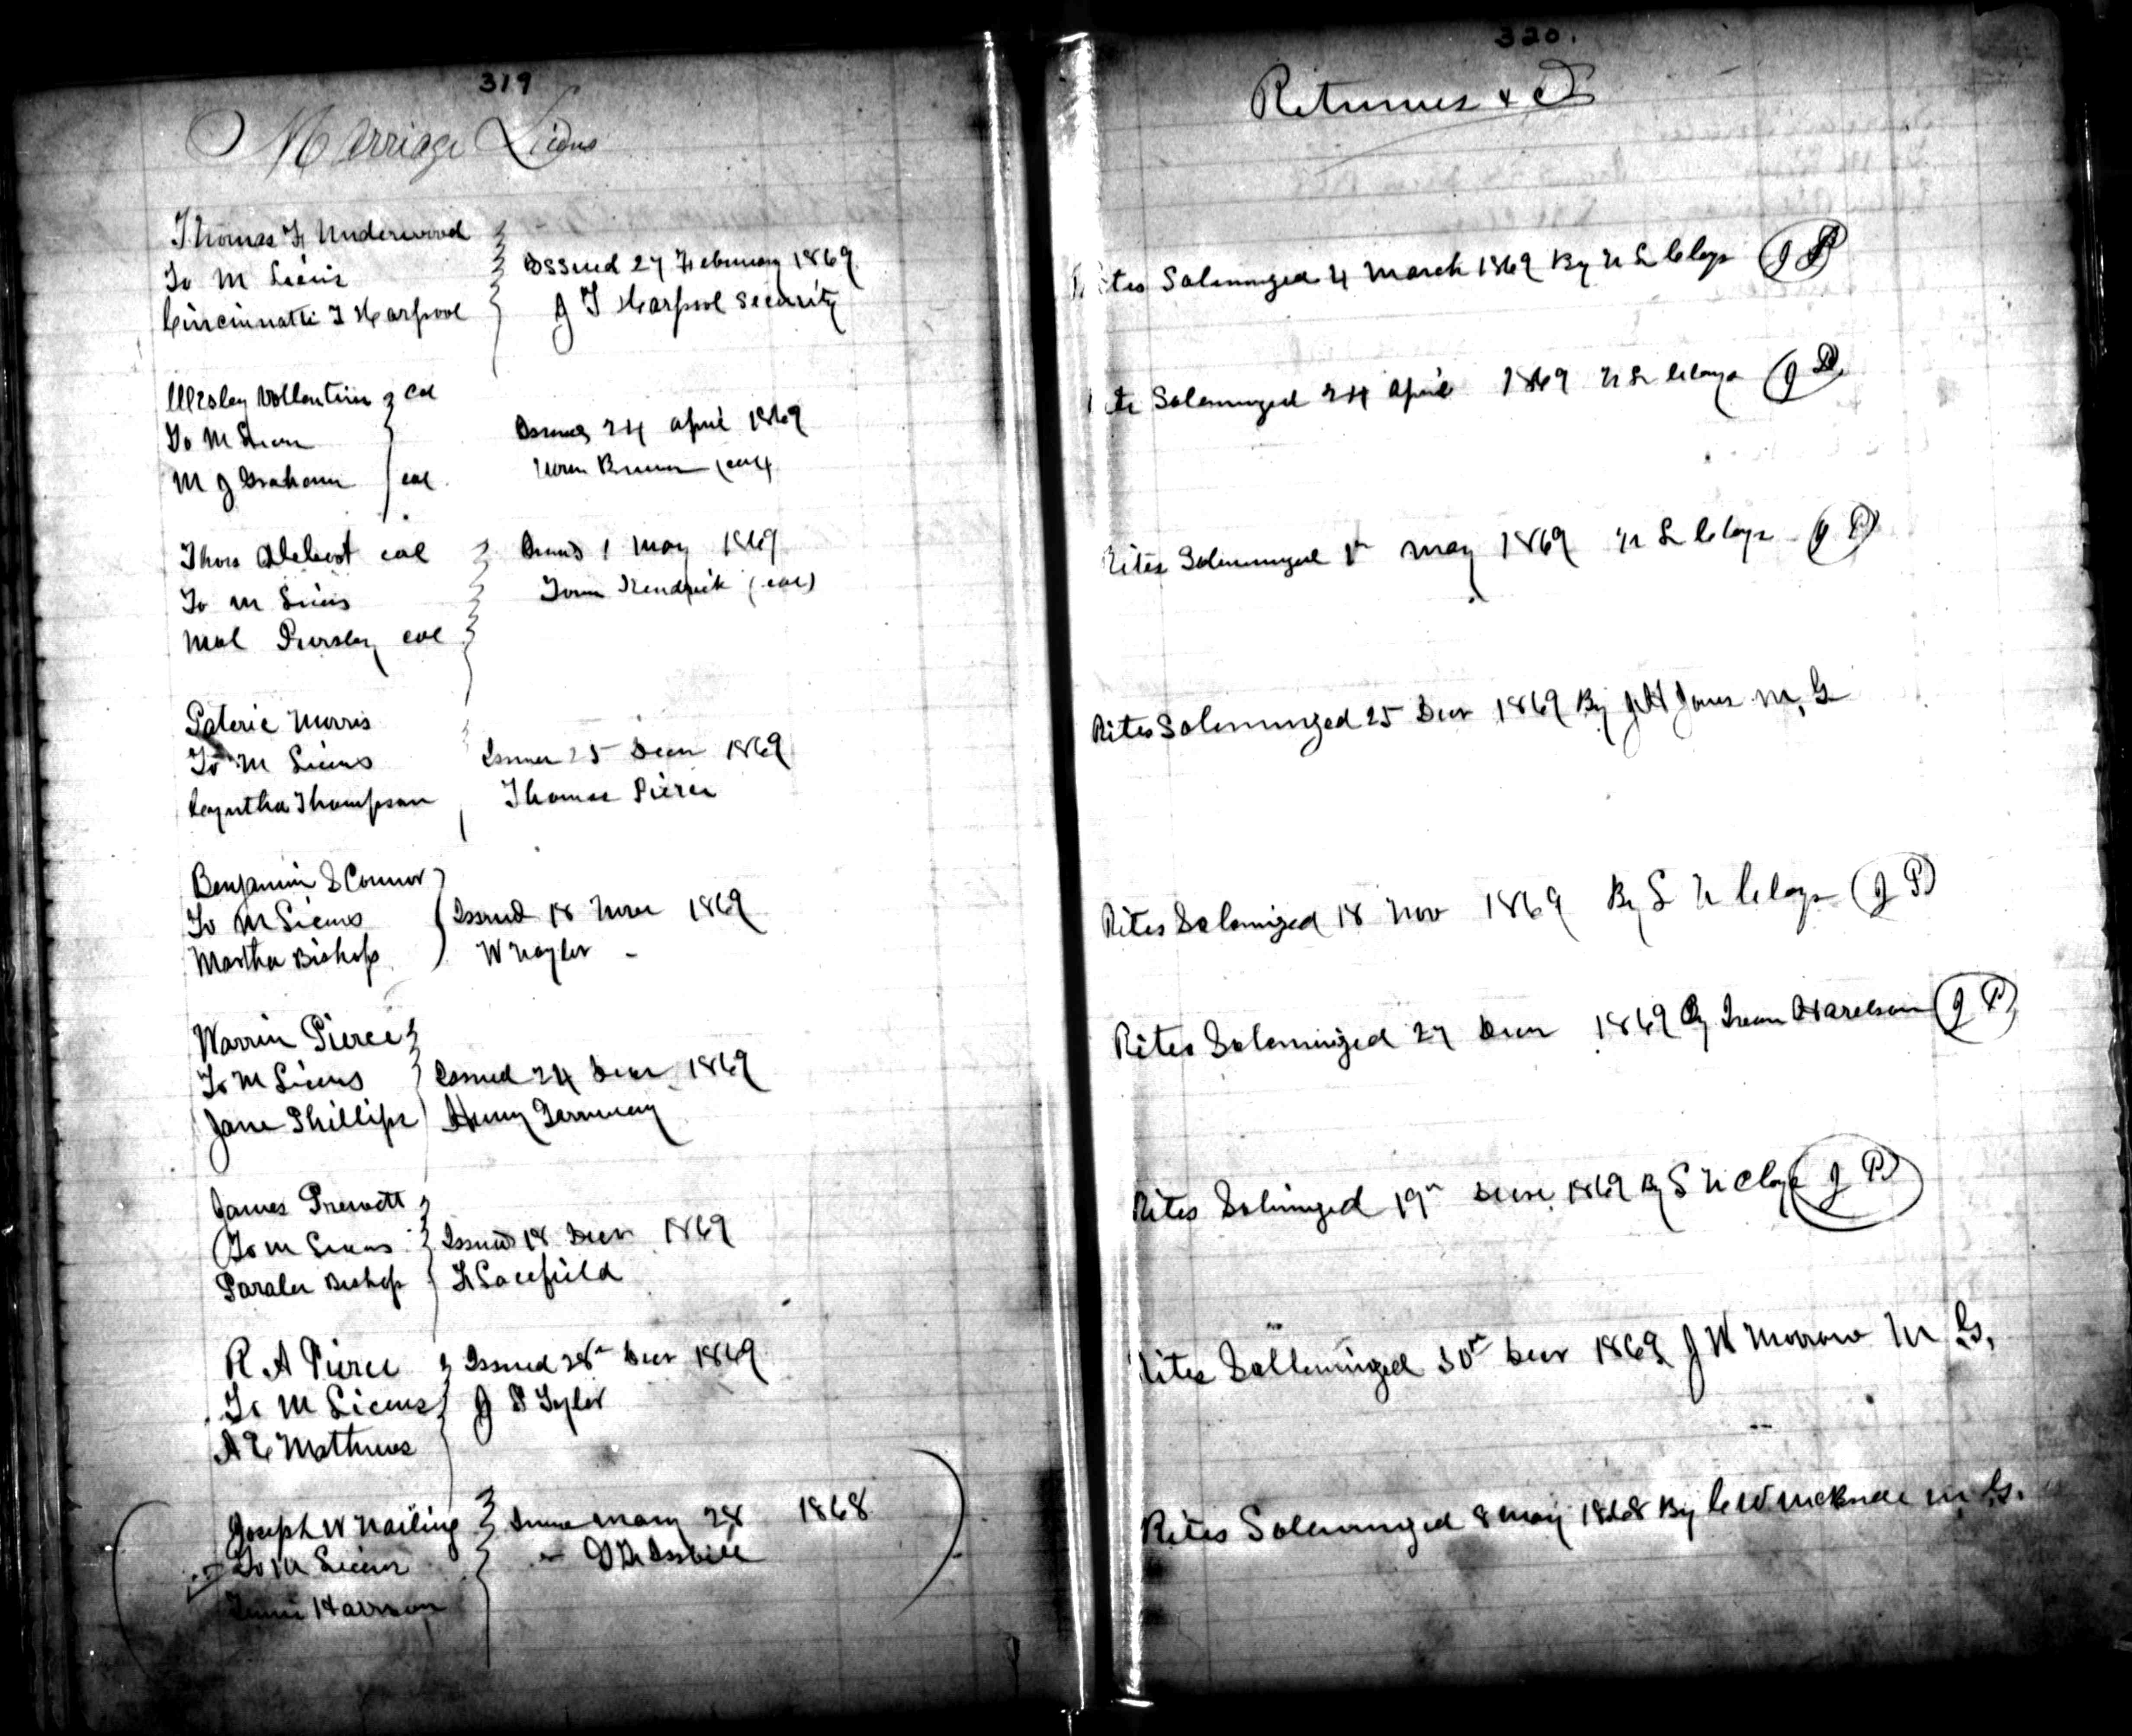 319
Marriage Licens
Thomas F Underwood
To M Licens
Cincinnatti T Harpool
Issued 27 February 1869
J T Harpool Security
Wesley Vollentine col
To M Licen
M J Graham col
Issued 24 April 1869
Brown (col)
Thos col
To M Licens
Mol Pursley col
Issued 1 May 1869
Tom Kendrick (col)
Pateric Morris
To M Licens
Cayntha Thompson
Issued 25 Decr 1869
Thomas Pierce
Benjamin S Connor
To M Licens
Martha Bishop
Issued 18 Novr 1869
W Naylor
Warrin Pierce
To M Licens
Jane Phillips
Issued 24 Decr 1869
Henry
James Prewett
To M Licens
Bishop
Issued 18 Decr 1869
R A Pierce
To M Licens
A E Mathews
Issued 28th Decr 1869
J S Tyler
Joseph W Nailing
To M Licens
Harrison
28 1868
320.
Returnes & C
Rites Solemnized 4 March 1869 By N L Clays J P
Solemnized 24 April 1869 N L Clays J P
Rites Solemnized 1st May 1869 N L Clays J P
Rites Solemnized 25 Decr 1869 By J H Jones M, G
Rites Solemnized 18 Nov 1869 By S N Clays J P
Rites Solemnized 27 Decr 1869 By Harelson J P
Rites Solemnized 19th Decr 1869 By S N Clays J P
Rites Sollemnized 30th Decr 1869 J W Morrow M G,
Rites Solemnized 8 May 1868 By C W M.G.